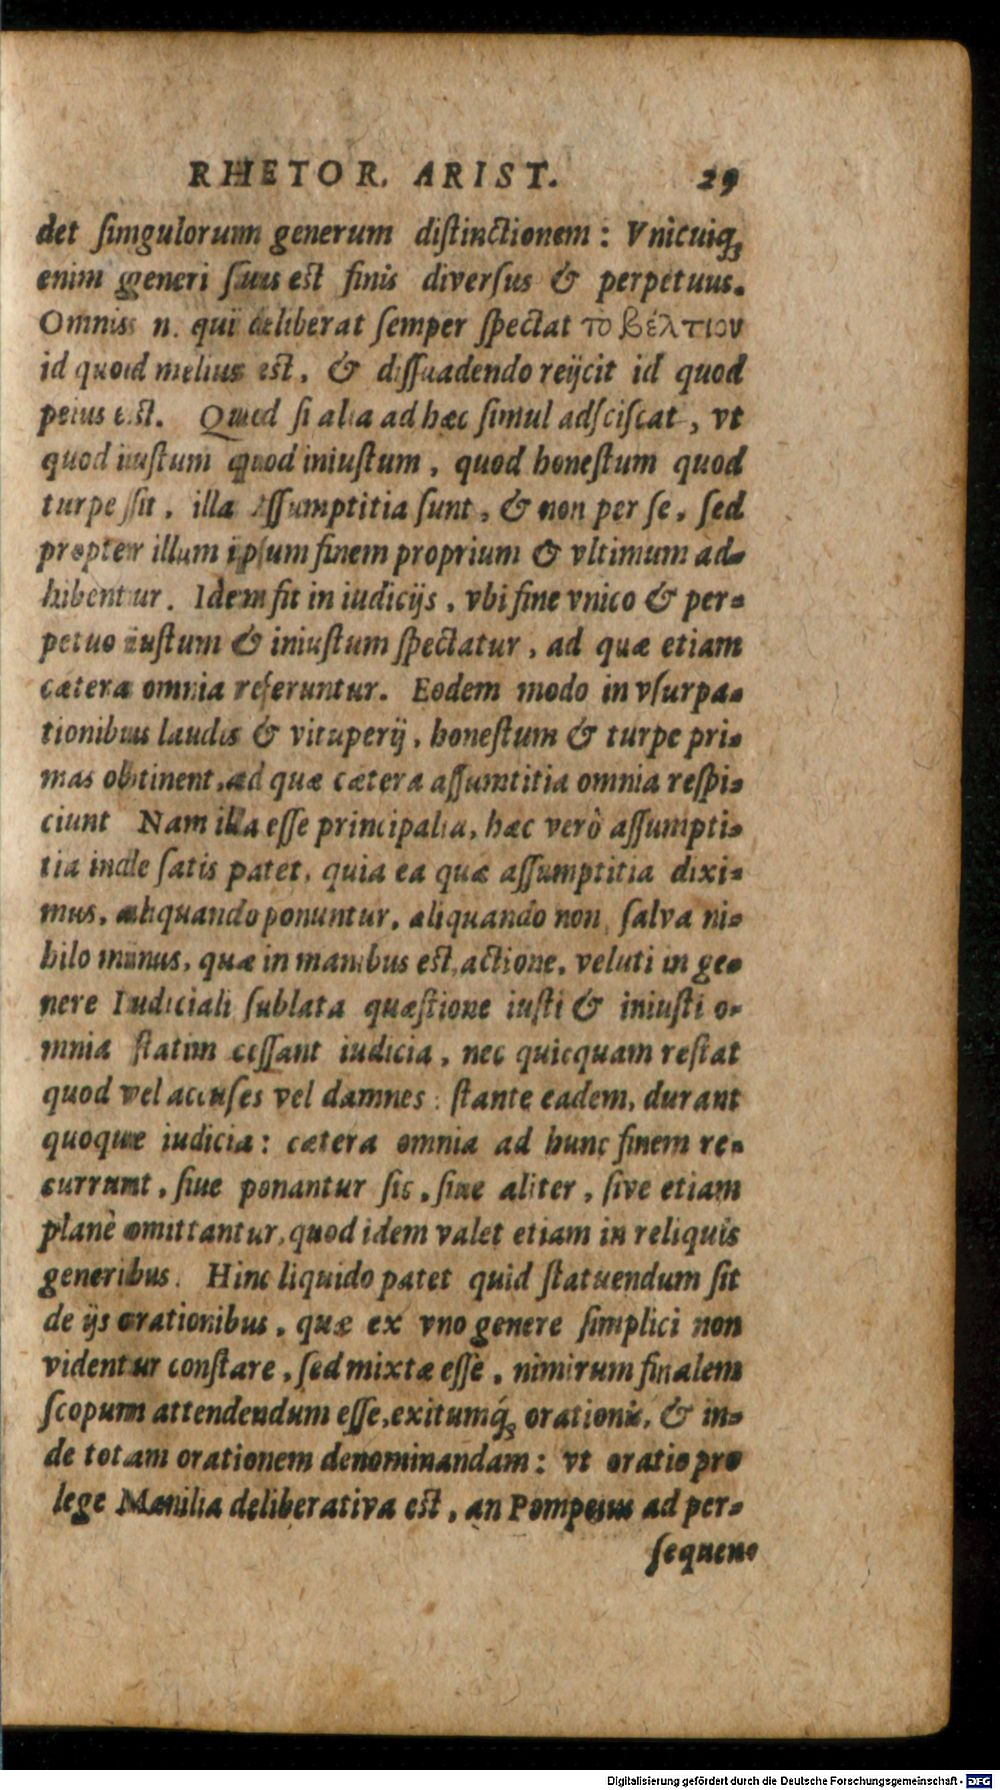 RHETOR. ARIST. 29
det singulorum generum distinctionem: Vnicuiq́;
enim generi suus est finis diversus & perpetuus.
Omnis n. qui deliberat semper spectat το βέλτιον
id quod melius est, & dissuadendo reijcit id quod
peius est. Quod si alia ad hæc simul adsciscat, vt
quod iustum quod iniustum, quod honestum quod
turpe sit, illa assumptitia sunt, & non per se, sed
propter illum ipsum finem proprium & vltimum ad-
hibentur. Idem fit in iudicijs, vbi fine vnico & per-
petuo iustum & iniustum spectatur, ad quæ etiam
cætera omnia referuntur. Eodem modo in vsurpa-
tionibus laudis & vituperij, honestum & turpe pri-
mas obtinent, ad quæ cætera assumtitia omnia respi-
ciunt Nam illa esse principalia, hæc verò assumpti-
tia inde satis patet, quia ea quæ assumptitia dixi-
mus, aliquando ponuntur, aliquando non, salva ni-
hilo minus, quæ in manibus est, actione, veluti in ge-
nere Iudiciali sublata quæstione iusti & iniusti o-
mnia statim cessant iudicia, nec quicquam restat
quod vel accuses vel damnes: stante eadem, durant
quoque iudicia: cætera omnia ad hunc finem re-
currunt, siue ponantur sic, siue aliter, sive etiam
planè omittantur, quod idem valet etiam in reliquis
generibus. Hinc liquido patet quid statuendum sit
de ijs orationibus, quæ ex vno genere simplici non
videntur constare, sed mixtæ esse, nimirum finalem
scopum attendendum esse, exitumq́; orationis, & in-
de totam orationem denominandam: vt oratio pro
lege Manilia deliberativa est, an Pompejus ad per-
sequen-
Digitalisierung gefördert durch die Deutsche Forschungsgemeinschaft - DFG